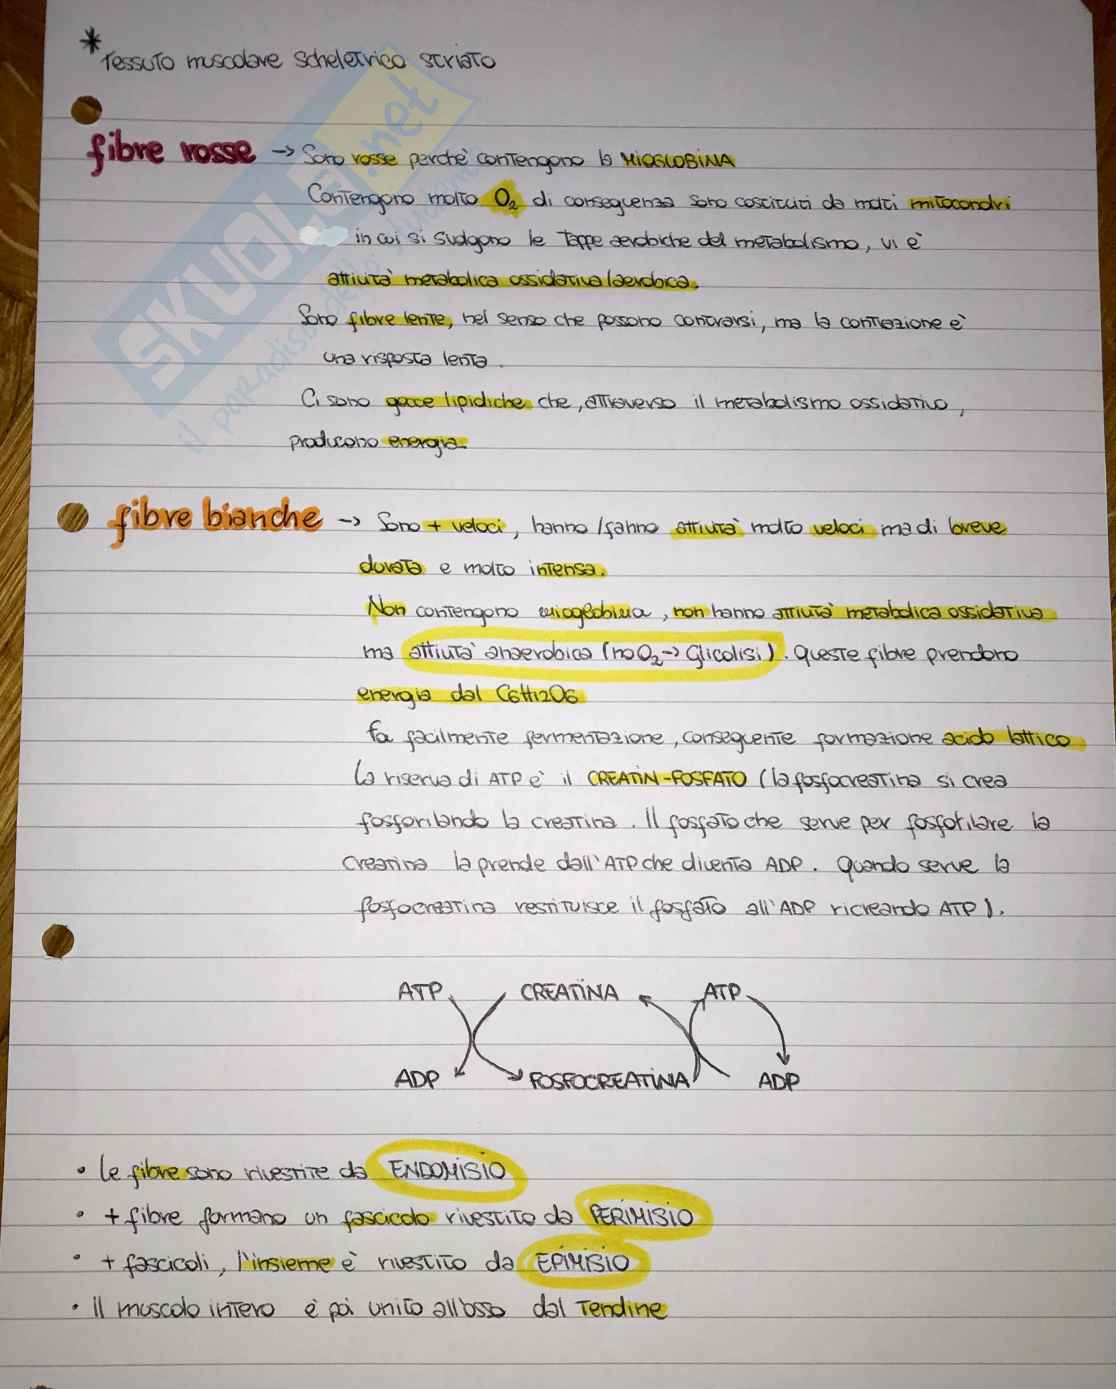 * Tessuto muscolare scheletrico striato
fibre rosse → Sono rosse perché contengono la MIOGLOBINA
Contengono molto O₂ di conseguenza sono costituiti da molti mitocondri
in cui si svolgono le tappe aerobiche del metabolismo, vi è
attività metabolica ossidativa/aerobica.
Sono fibre lente, nel senso che possono contrarsi, ma la contrazione è
una risposta lenta.
Ci sono gocce lipidiche che, attraverso il metabolismo ossidativo,
producono energia.
fibre bianche → Sono + veloci, hanno/fanno attività molto veloci ma di breve
durata e molto intensa.
Non contengono mioglobina, non hanno attività metabolica ossidativa
ma attività anaerobica (no O₂ → Glicolisi). Queste fibre prendono
energia dal C6H12O6
Fa facilmente fermentazione, conseguente formazione acido lattico
La riserva di ATP è il CREATIN-FOSFATO (la fosfocreatina si crea
fosforilando la creatina. Il fosfato che serve per fosforilare la
creatina la prende dall'ATP che diventa ADP. Quando serve la
fosfocreatina restituisce il fosfato all'ADP ricreando ATP).
ATP CREATINA ATP
ADP FOSFOCREATINA ADP
• Le fibre sono rivestite da ENDOMISIO
• + fibre formano un fascicolo rivestito da PERIMISIO
• + fascicoli, l'insieme è rivestito da EPIMISIO
• Il muscolo intero è poi unito all'osso dal Tendine
SKUOLA.net